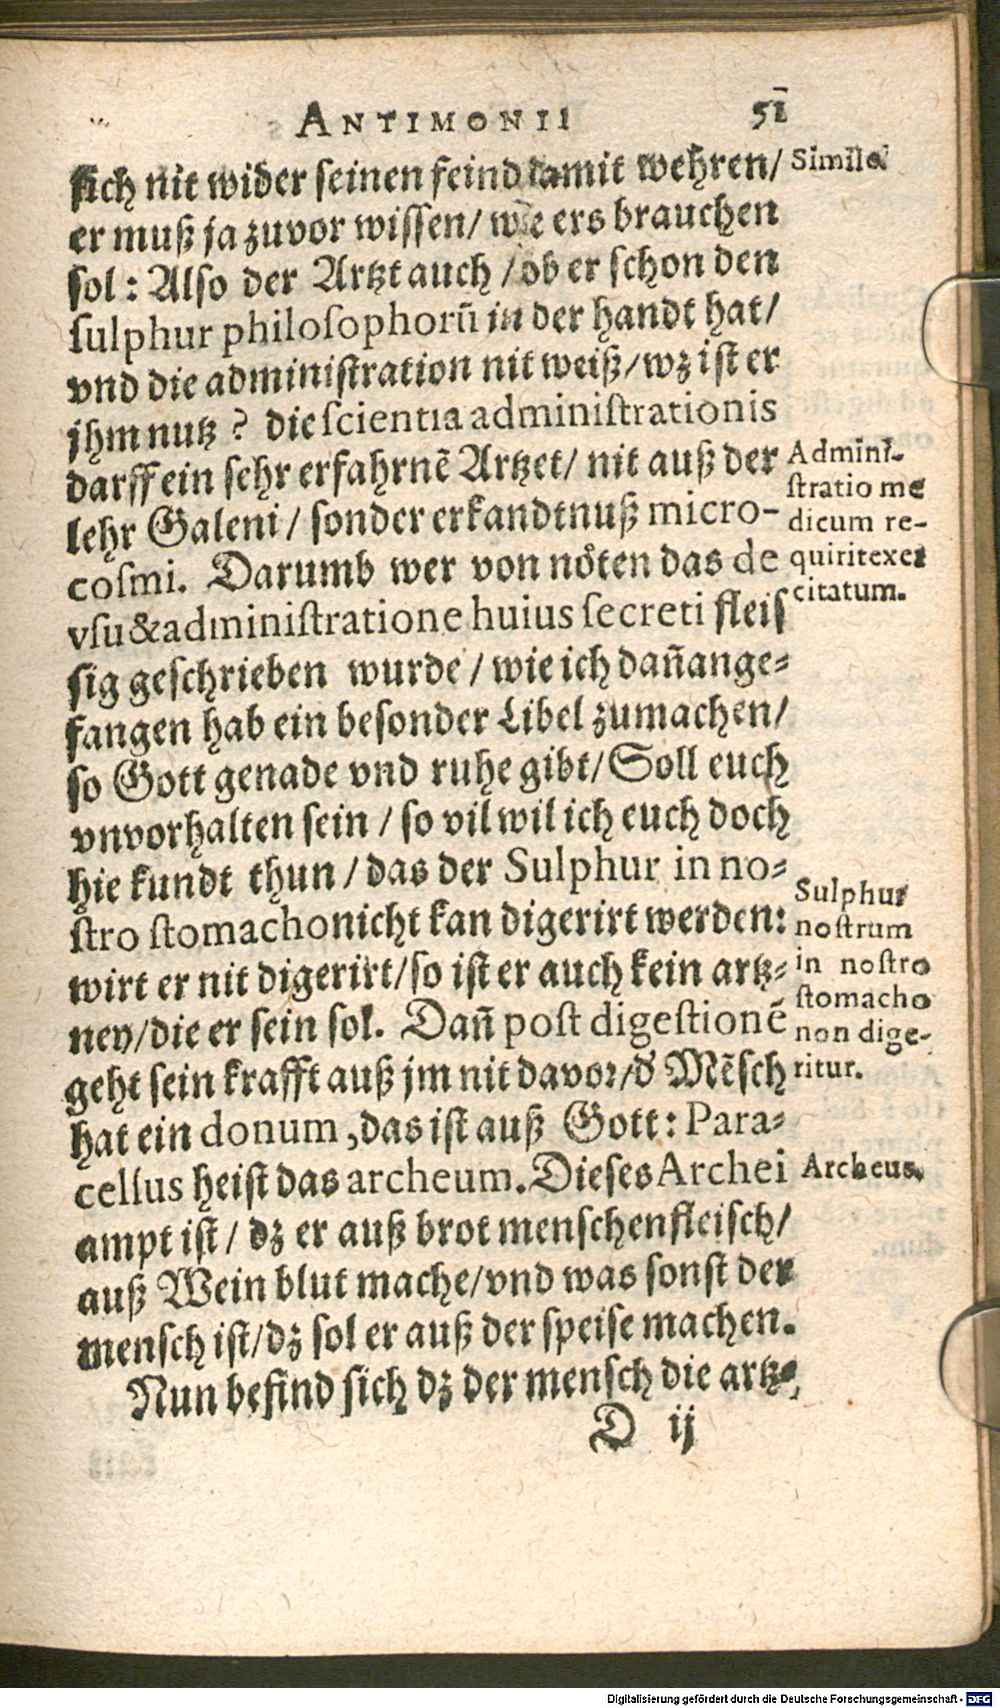 ANTIMONII 51
sich nit wider seinen feind damit wehren/
er muß ja zuvor wissen/ wie ers brauchen
sol: Also der Artzt auch/ ob er schon den
sulphur philosophorũ in der handt hat/
vnd die administration nit weiß/ wz ist er
jhm nutz? die scientia administrationis
darff ein sehr erfahrnẽ Artzet/ nit auß der
lehr Galeni/ sonder erkandtnuß micro-
cosmi. Darumb wer von nöten das de
vsu & administratione huius secreti fleis
sig geschrieben wurde/ wie ich dañ ange-
fangen hab ein besonder Libel zumachen/
so Gott genade vnd ruhe gibt/ Soll euch
vnvorhalten sein/ so vil wil ich euch doch
hie kundt thun/ das der Sulphur in no-
stro stomacho nicht kan digerirt werden:
wirt er nit digerirt/ so ist er auch kein artz-
ney/ die er sein sol. Dañ post digestionẽ
geht sein krafft auß jm nit davor/ d' Mẽsch
hat ein donum, das ist auß Gott: Para-
cellus heist das archeum. Dieses Archei
ampt ist/ dz er auß brot menschenfleisch/
auß Wein blut mache/ vnd was sonst der
mensch ist/ dz sol er auß der speise machen.
Nun befind sich dz der mensch die artz-
D ij
Simile.
Admini-
stratio me
dicum re-
quirit exer
citatum.
Sulphur
nostrum
in nostro
stomacho
non dige-
ritur.
Archeus.
Digitalisierung gefördert durch die Deutsche Forschungsgemeinschaft - DFG